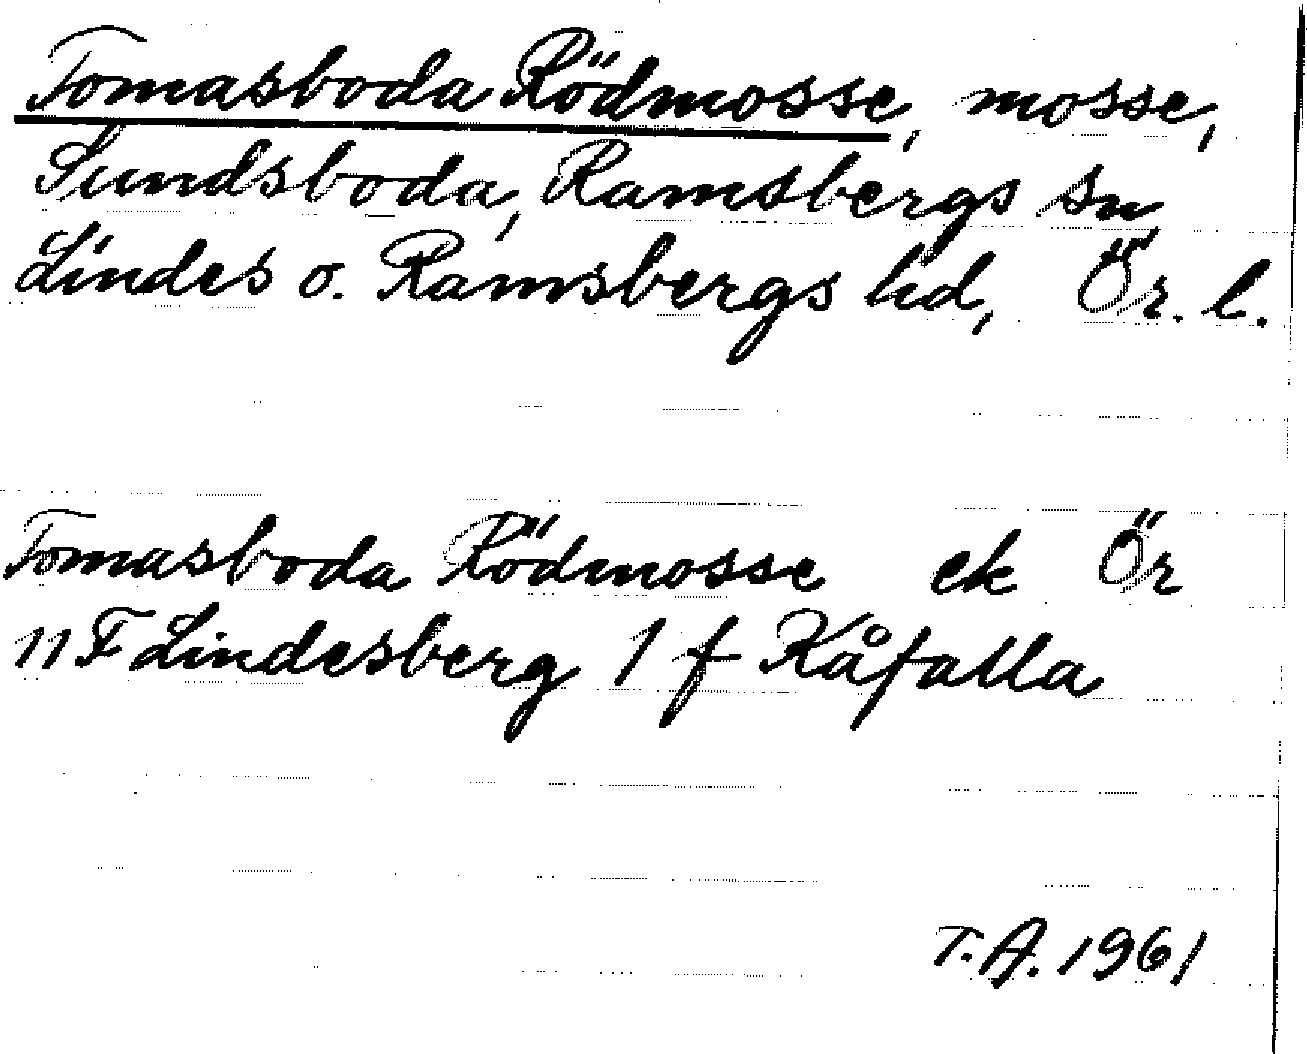 Tomasboda Rödmosse, mosse,
Sundsboda, Ramsbergs sn,
Lindes o. Ramsbergs hd, Ör. l.
Tomasboda Rödmosse ek Ör
11 F Lindesberg 1 f Kåfalla
T.A. 1961